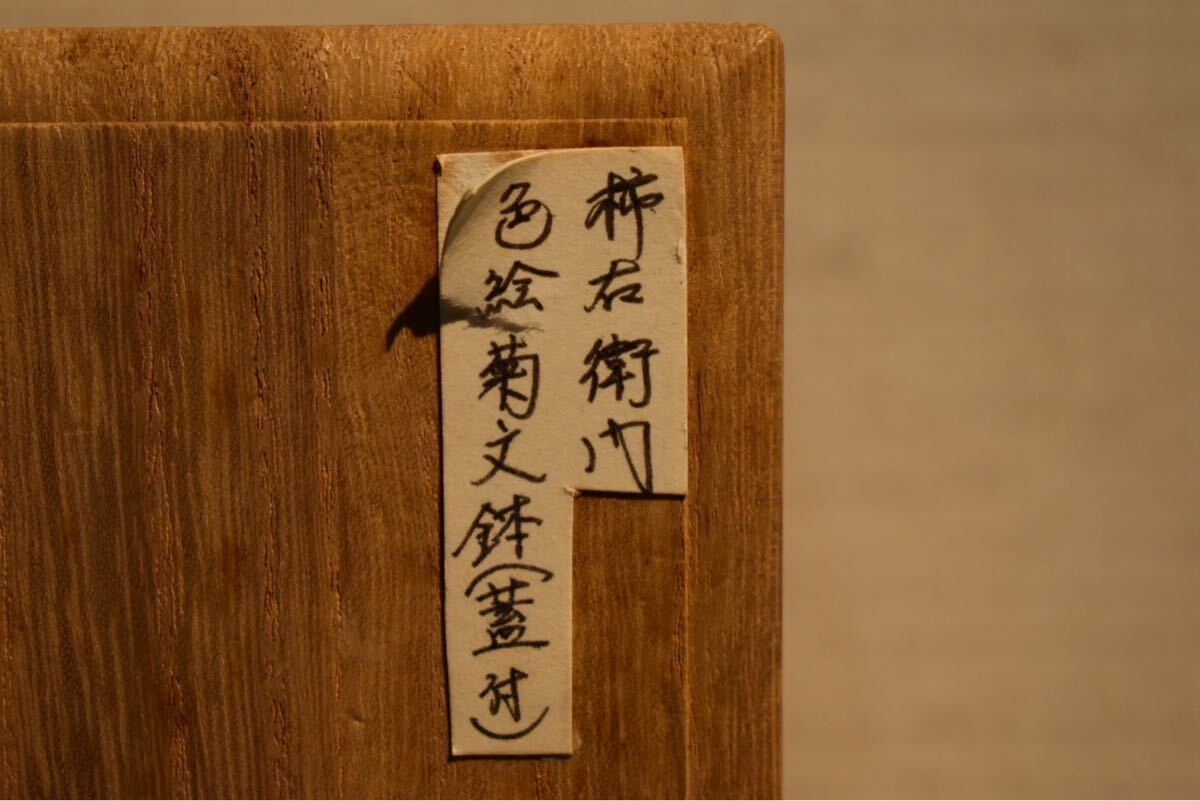 柿右衛門
色絵菊文鉢(蓋付)